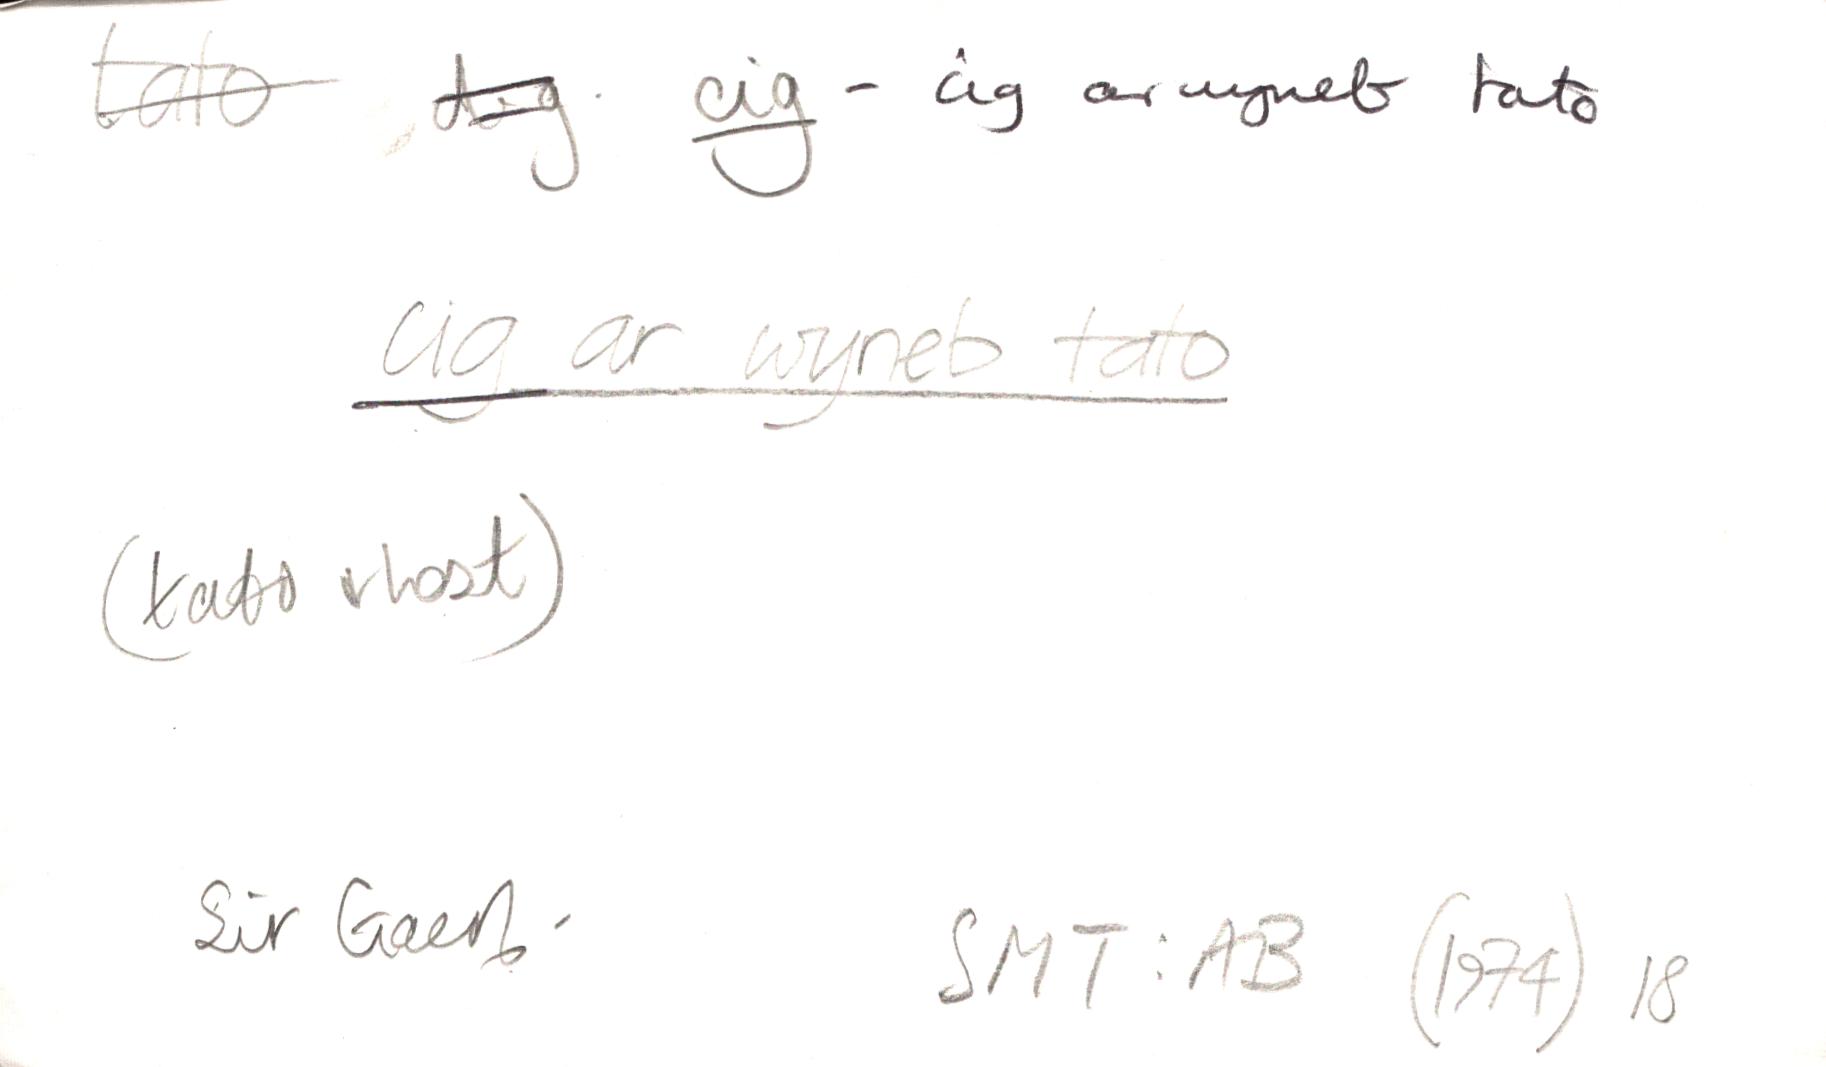 tato cig - cig ar wyneb tato
cig ar wyneb tato
(tato rhost)
Sir Gaerf.
SMT:AB (1974) 18